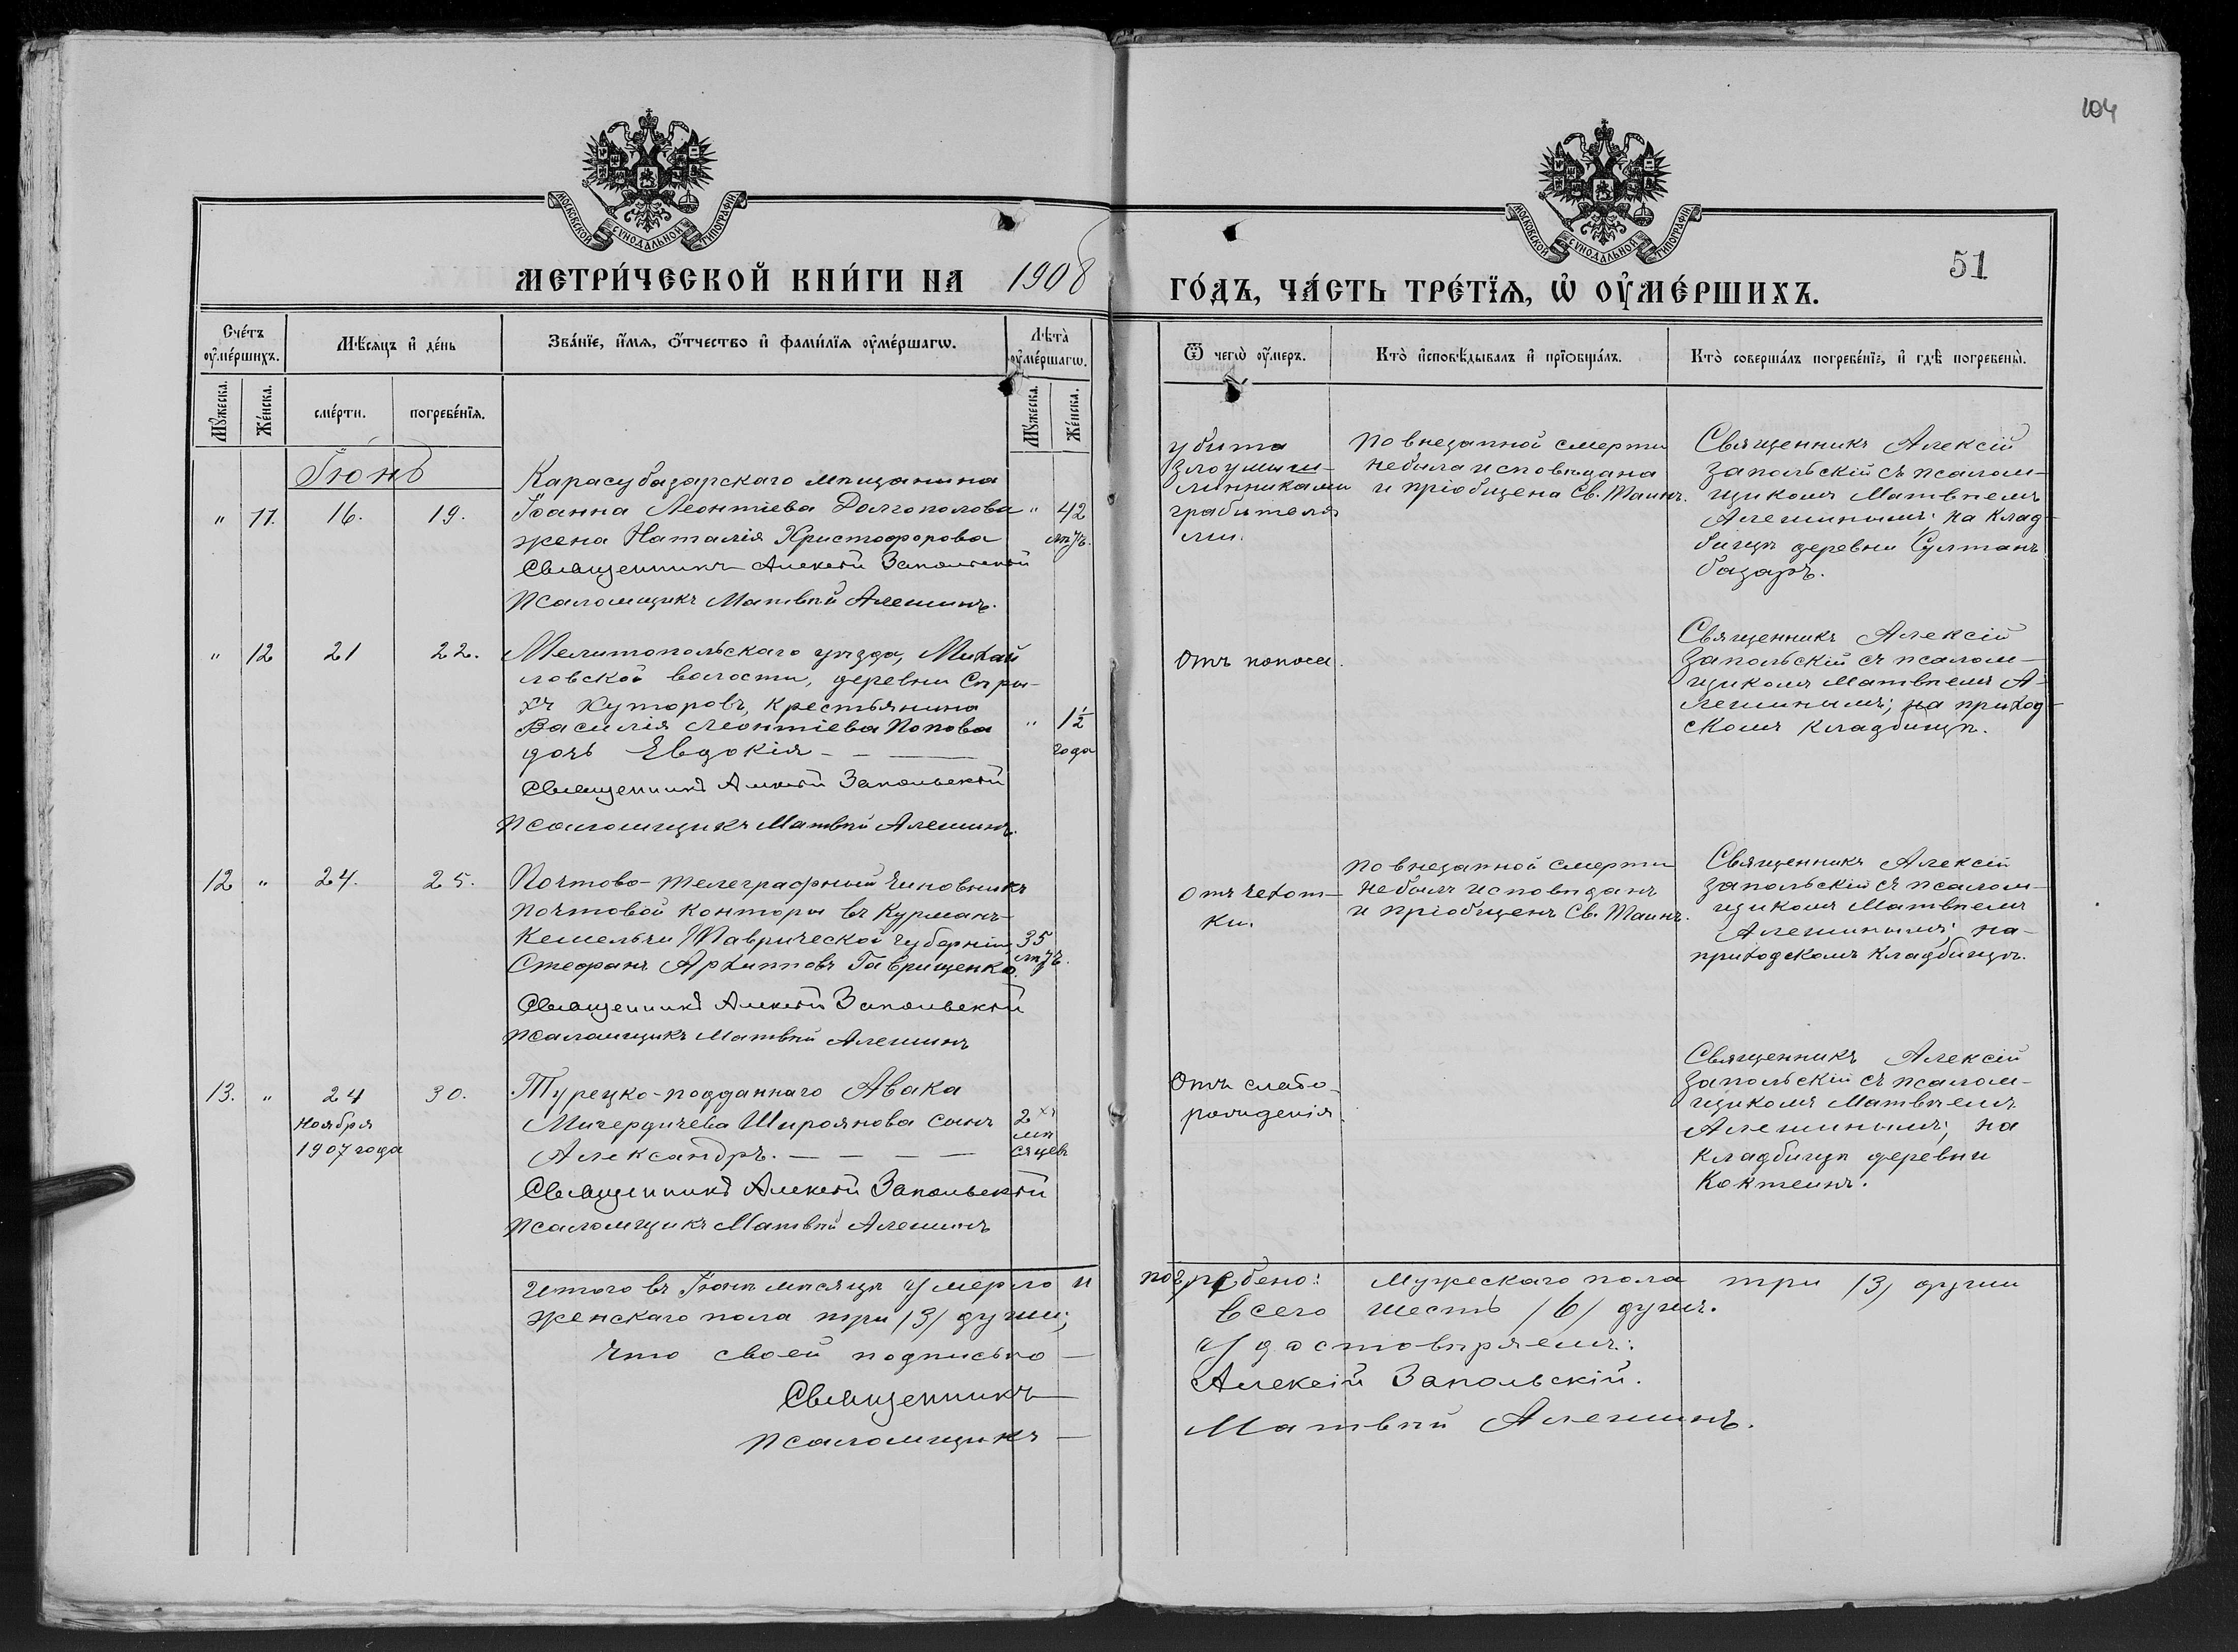 104
МОСКОВСКОЙ СѴНОДАЛЬНОЙ ТИПОГРАФІИ.
МОСКОВСКОЙ СѴНОДАЛЬНОЙ ТИПОГРАФІИ.
51
МЕТРИ́ЧЕСКОЙ КНИ́ГИ НА 1908
ГО́ДЪ, ЧА́СТЬ ТРЕ́ТЇѦ, Ѡ҆ ОУ҆МЕ́РШИХЪ.
Сче́тъ оу҆ме́ршихъ.
Мѣ́сяцъ и҆ де́нь
Зва́нїе, и҆́мѧ, ѻ҆́тчество и҆ фами́лїѧ оу҆ме́ршагѡ.
Лѣ́та оу҆ме́ршагѡ.
Ѿ чегѡ̀ оу҆́меръ.
Кто̀ и҆сповѣ́дывалъ и҆ прїѡбща́лъ.
Кто̀ соверша́лъ погребе́нїе, и҆ гдѣ̀ погребены̀.
Мꙋ́жеска.
Же́нска.
сме́рти.
погребе́нїѧ.
Мꙋ́жеска.
Же́нска.
Іюнь
" 11. 16. 19.
Карасубазарскаго мѣщанина
Іоанна Леонтіева Долгополова
жена Наталія Христофорова
" 42
лѣтъ.
Священникъ Алексій Запольскій
Псаломщикъ Матвѣй Алешинъ.
убита
злоумыш-
ленниками
грабителя
ми.
По внезапной смерти
не была исповѣдана
и пріобщена Св. Таинъ.
Священникъ Алексій
Запольскій съ псалом-
щикомъ Матвѣемъ
Алешинымъ; на клад-
бищѣ деревни Султанъ
базаръ.
" 12 21 22.
Мелитопольскаго уѣзда, Михай
ловской волости, деревни Спры-
хъ Хуторовъ, крестьянина
Василія Леонтіева Попова
дочь Евдокія
" 1½
года
Священникъ Алексій Запольскій
Псаломщикъ Матвѣй Алешинъ.
Отъ поноса.
Священникъ Алексій
Запольскій съ псалом-
щикомъ Матвѣемъ А-
лешинымъ; на приход-
скомъ кладбищѣ.
12 " 24. 25.
Почтово-телеграфный чиновникъ
почтовой конторы въ Курманъ-
Кемельчи Таврической губерніи
Стефанъ Архипповъ Гаврищенко.
35
лѣтъ.
Священникъ Алексій Запольскій
Псаломщикъ Матвѣй Алешинъ
Отъ чехот-
ки.
По внезапной смерти
не былъ исповѣданъ
и пріобщенъ Св. Таинъ.
Священникъ Алексій
Запольскій съ псалом-
щикомъ Матвѣемъ
Алешинымъ; на
приходскомъ кладбищѣ.
13. " 24 30.
ноября
1907 года
Турецко-подданнаго Авака
Мигердичева Широянова сынъ
Александръ.
2хъ
мѣ
сяцевъ
Священникъ Алексій Запольскій
Псаломщикъ Матвѣй Алешинъ
Отъ слабо-
рожденія.
Священникъ Алексій
Запольскій съ псалом-
щикомъ Матвѣемъ
Алешинымъ; на
кладбищѣ деревни
Коктеинъ.
Итого въ Іюнѣ мѣсяцѣ умерло и погребено: мужескаго пола три /3/ души
женскаго пола три /3/ души; всего шесть /6/ душъ.
Что своей подписью — удостовѣряемъ:
Священникъ — Алексій Запольскій.
Псаломщикъ — Матвѣй Алешинъ.